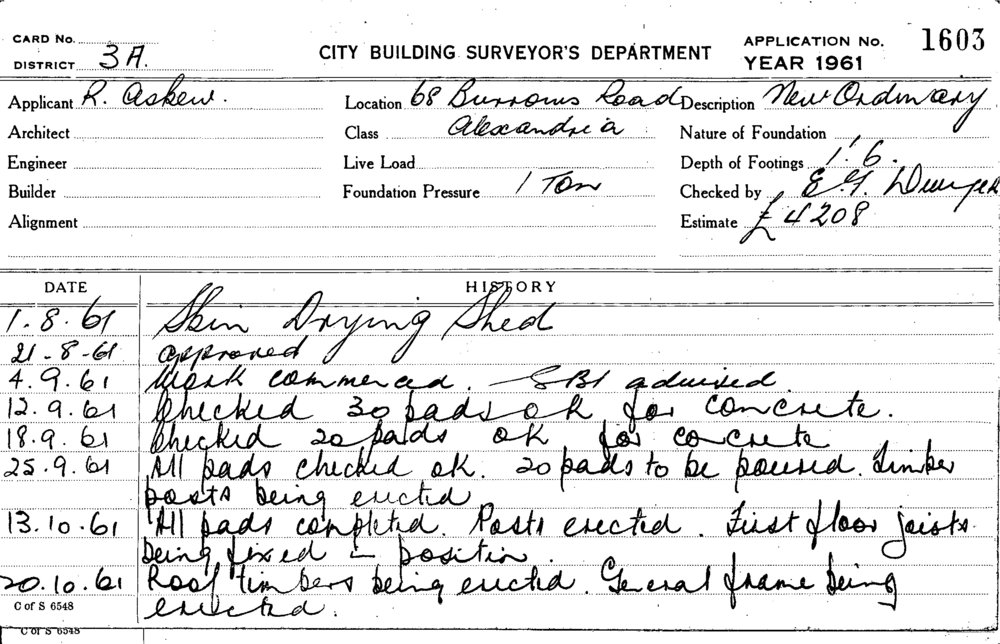 CARD No.
DISTRICT 3A.
CITY BUILDING SURVEYOR'S DEPARTMENT
APPLICATION No. 1603
YEAR 1961
Applicant R. Askew. Location 68 Burrows Road Description New Ordinary
Architect Class Alexandria Nature of Foundation
Engineer Live Load Depth of Footings 1'6.
Builder Foundation Pressure 1 Ton Checked by E.G.
Alignment Estimate £4208
DATE HISTORY
1.8.61 Skin Drying Shed
21-8-61 approved
4.9.61 Work commenced. SBI advised.
12.9.61 Checked 30 pads ok for concrete.
18.9.61 Checked 20 pads ok for concrete
25.9.61 All pads checked ok. 20 pads to be poured. Timber
posts being erected
13.10.61 All pads completed. Posts erected. First floor joists
being fixed in position.
20.10.61 Roof timbers being erected. General frame being
erected.
C of S 6548
C of S 6548